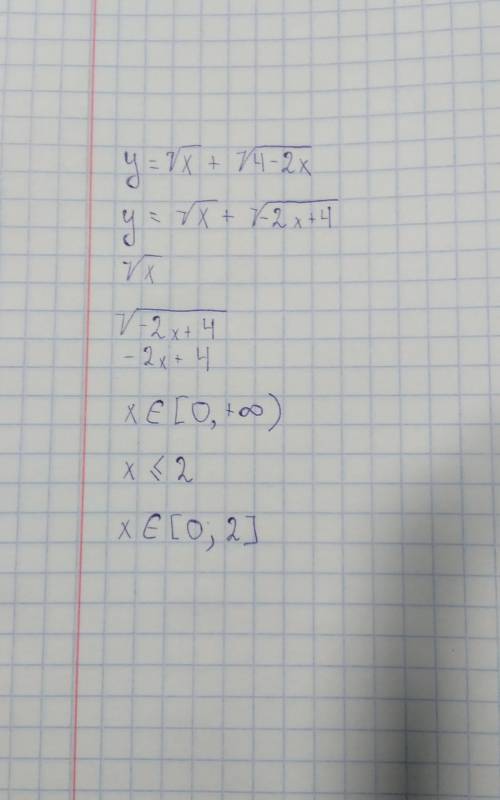 y = √x + √4-2x
y = √x + √-2x+4
√x
√-2x+4
-2x+4
x ∈ [0, +∞)
x ⩽ 2
x ∈ [0; 2]